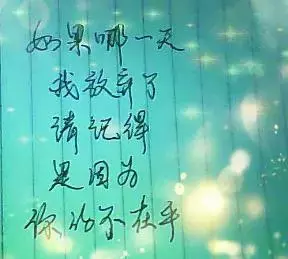 如果哪一天
我放弃了
请记得
是因为
你的不在乎